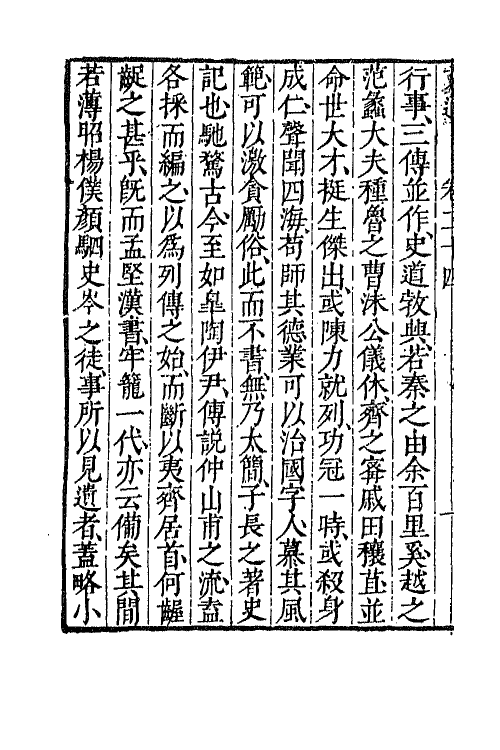 卷二十四
行事、三傳並作、史道敦興、若秦之由余百里奚、越之
范蠡大夫種魯之曹沬公儀休、齊之甯戚田穰苴並
命世大才、挺生傑出、或陳力就列、功冠一時、或殺身
成仁、聲聞四海、苟師其德業可以治國字人、慕其風
範、可以激貪勵俗、此而不書、無乃太簡、子長之著史
記也、馳騖古今、至如臯陶伊尹、傅說仲山甫之流、盍
各採而編之、以爲列傳之始、而斷以夷齊居首、何齷
齪之甚乎、旣而孟堅漢書、牢籠一代、亦云備矣、其間
若薄昭楊僕顏駟史岑之徒、事所以見遺者、蓋略小